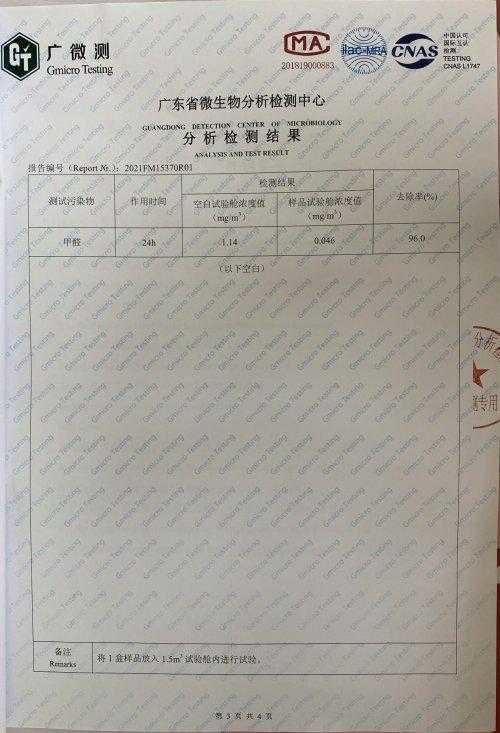 广微测
Gmicro Testing
MA
201819000883
ilac-MRA
CNAS
中国认可
国际互认
检测
TESTING
CNAS L1747
广东省微生物分析检测中心
GUANGDONG DETECTION CENTER OF MICROBIOLOGY
分析检测结果
ANALYSIS AND TEST RESULT
报告编号（Report №.）：2021FM15370R01
测试污染物 作用时间 检测结果 去除率(%)
空白试验舱浓度值 样品试验舱浓度值
（mg/m³） （mg/m³）
甲醛 24h 1.14 0.046 96.0
（以下空白）
分析
测专用
备注
Remarks
将 1 盒样品放入 1.5m³ 试验舱内进行试验。
第 3 页 共 4 页